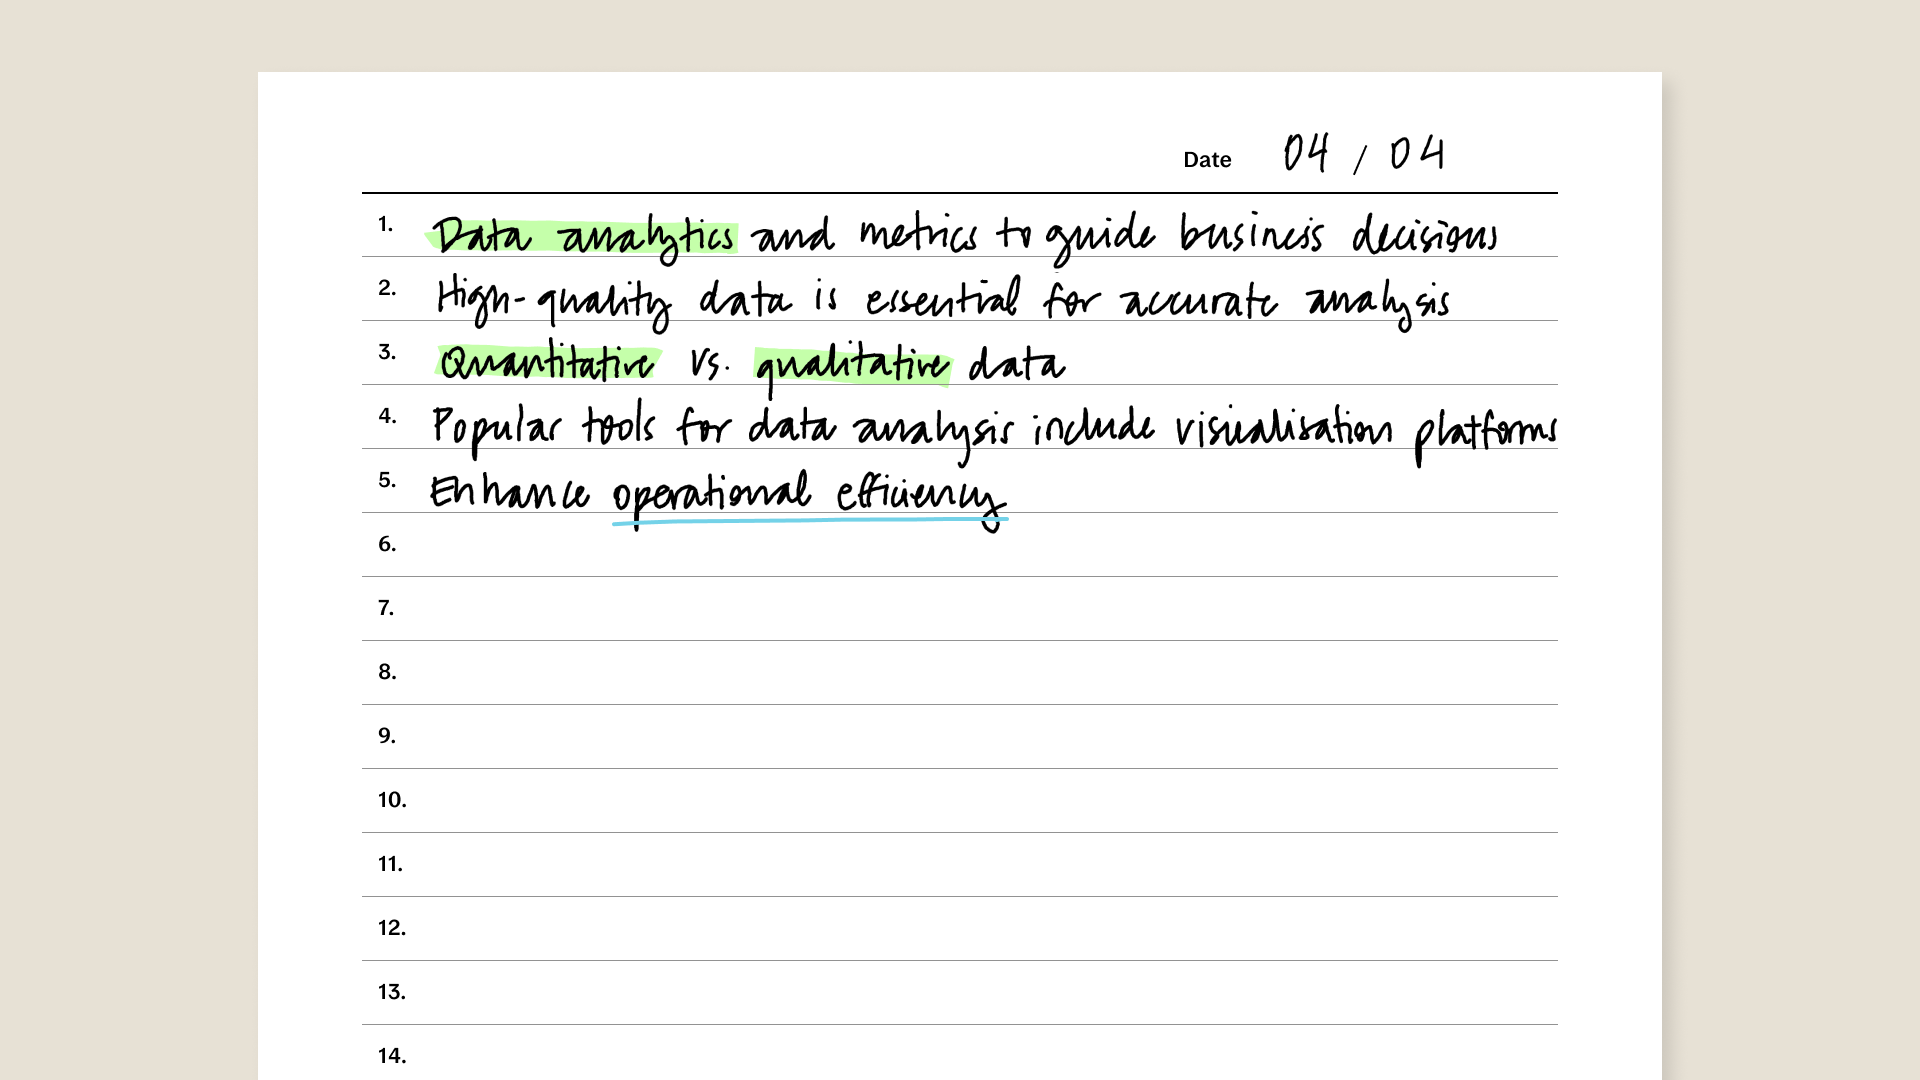 Date 04 / 04
1. Data analytics and metrics to guide business decisions
2. High-quality data is essential for accurate analysis
3. Quantitative vs. qualitative data
4. Popular tools for data analysis include visualisation platforms
5. Enhance operational efficiency
6.
7.
8.
9.
10.
11.
12.
13.
14.